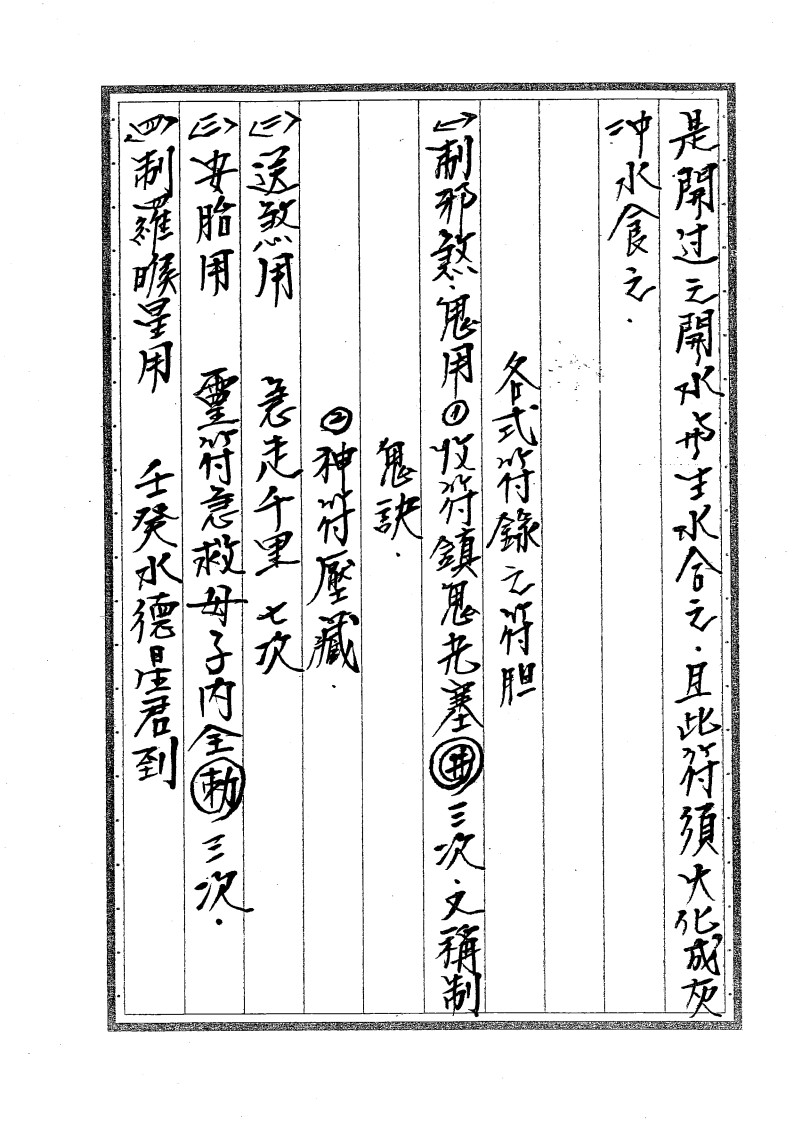 是開过之開水与生水合之．且此符須火化成灰
冲水食之．
各式符錄之符胆
㈠制邪煞．鬼用①收符鎮鬼老塞㊌三次．又稱制
鬼訣．
②神符壓藏．
㈡送煞用　急走千里七次
㈢安胎用　靈符急救母子内全勅三次．
㈣制羅睺星用　壬癸水德星君到